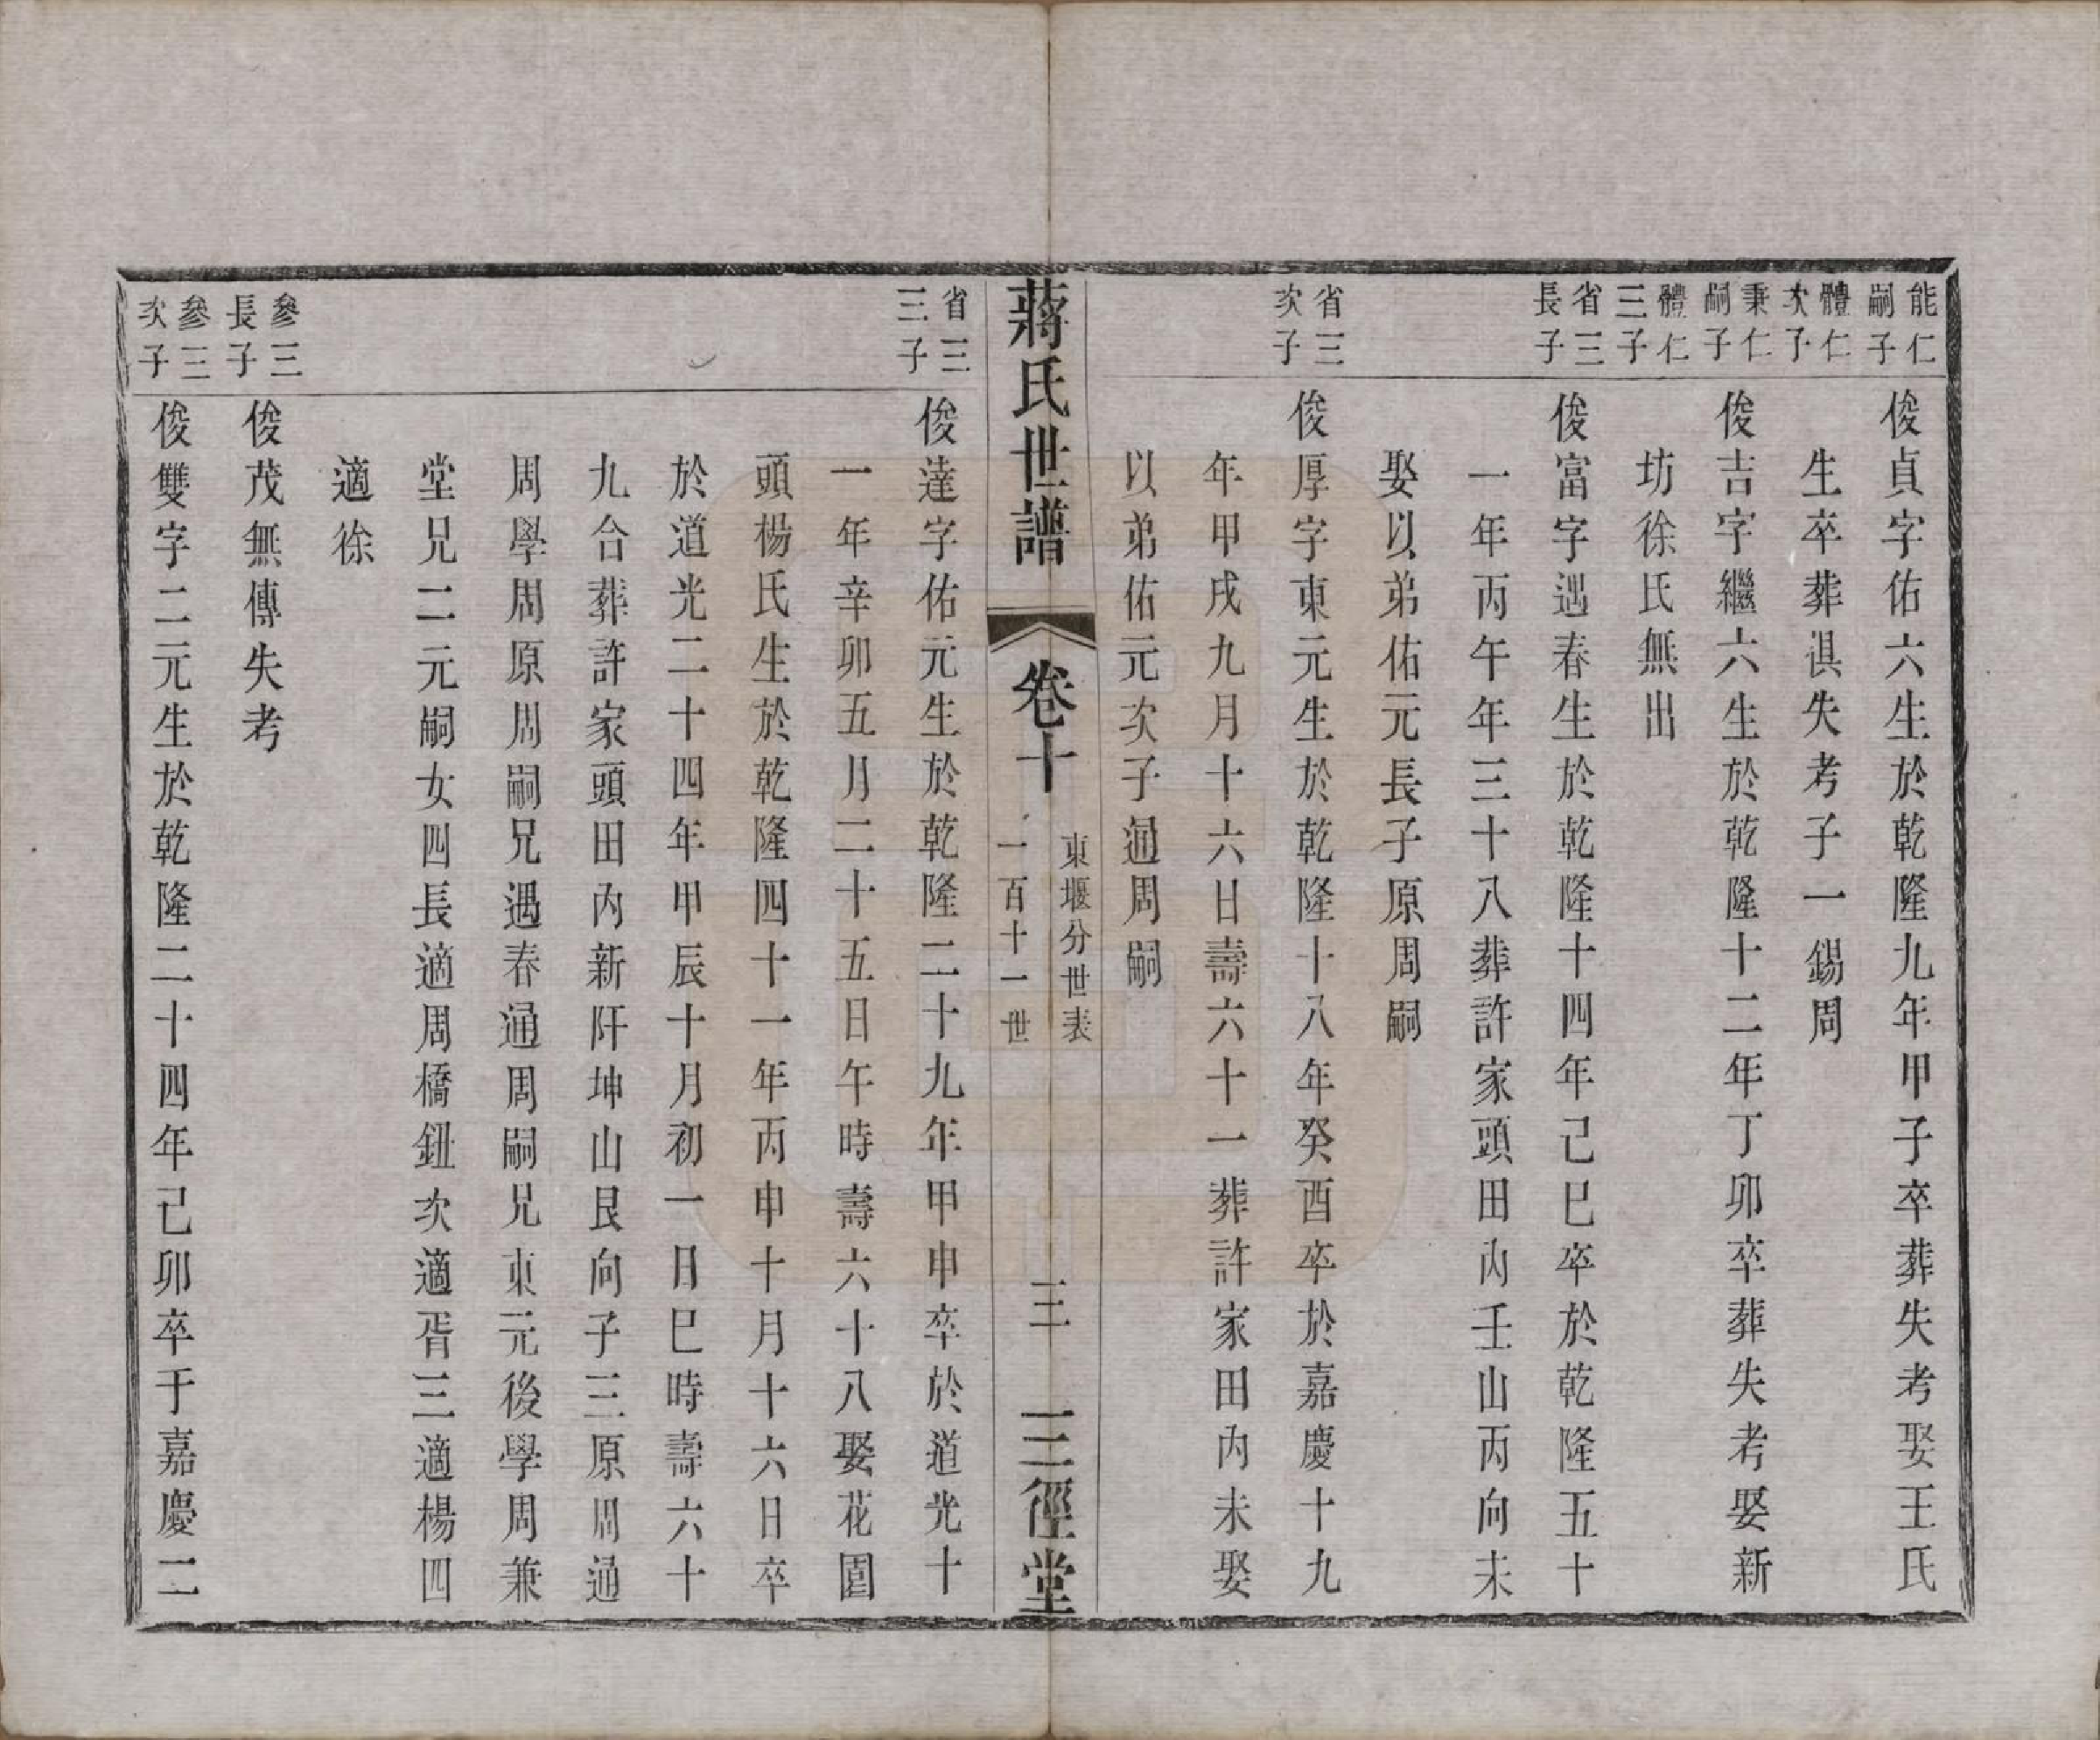 能仁
嗣子
俊貞字佑六生於乾隆九年甲子卒葬失考娶王氏
體仁
次子
生卒葬俱失考子一錫周
秉仁
嗣子
俊吉字繼六生於乾隆十二年丁卯卒葬失考娶新
體仁
三子
坊徐氏無出
省三
長子
俊富字遇春生於乾隆十四年己巳卒於乾隆五十
一年丙午年三十八葬許家頭田內壬山丙向未
娶以弟佑元長子原周嗣
省三
次子
俊厚字東元生於乾隆十八年癸酉卒於嘉慶十九
年甲戌九月十六日壽六十一葬許家田內未娶
以弟佑元次子通周嗣
蔣氏世譜 卷十
東堰分世表
一百十一世
三 三徑堂
省三
三子
俊達字佑元生於乾隆二十九年甲申卒於道光十
一年辛卯五月二十五日午時壽六十八娶花園
頭楊氏生於乾隆四十一年丙申十月十六日卒
於道光二十四年甲辰十月初一日巳時壽六十
九合葬許家頭田內新阡坤山艮向子三原周通
周學周原周嗣兄遇春通周嗣兄東元後學周兼
堂兄二元嗣女四長適周橋鈕次適胥三適楊四
適徐
參三
長子
俊茂無傳失考
參三
次子
俊雙字二元生於乾隆二十四年己卯卒于嘉慶二